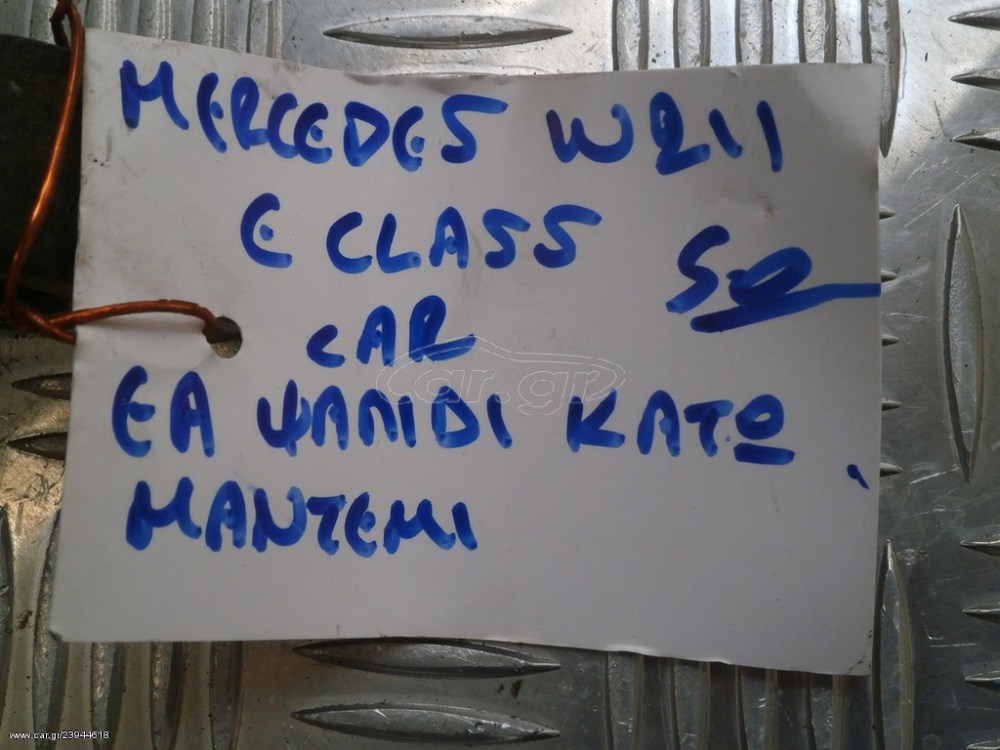 MERCEDES W211
E CLASS
SΩ
CAR
ΕΛ ΨΑΛΙΔΙ ΚΑΤΩ
ΜΑΝΤΕΜΙ
car.gr
www.car.gr/23944618